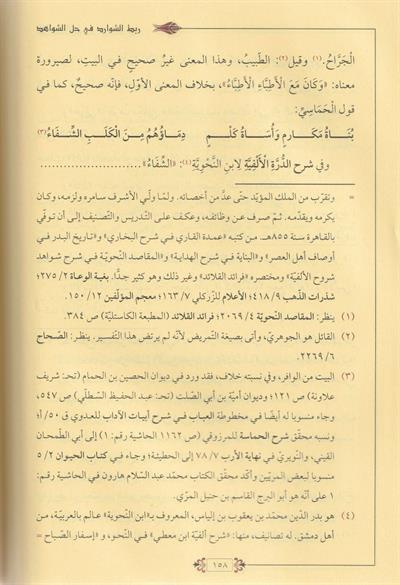 ربط الشوارد في حل الشواهد
الْجَرَّاحُ.(١) وقيل(٢): الطّبيبُ، وهذا المعنى غيرُ صحيحٍ في البيتِ، لصيرورة
معناه: «وَكَانَ مَعَ الْأَطِبَّاءِ الْأَطِبَّاءُ»، بخلاف المعنى الأوّلِ، فإنّه صحيحٌ، كما في
قول الْحَمَاسِيّ:
بُنَاةُ مَكَارِمٍ وَأُسَاةُ كَلْمٍ دِمَاؤُهُمُ مِنَ الْكَلَبِ الشِّفَاءُ(٣)
وفي شرح الدُّرَّةِ الْأَلْفِيَّةِ لِابنِ النَّحْوِيَّةِ(٤): «الشِّفَاءُ»
= وتقرّب من الملك المؤيّد حتى عدَّ من أخصائه. ولمّا ولي الأشرف سامره ولزمه، وكان
يكرمه ويقدّمه. ثمّ صرف عن وظائفه، وعكف على التدريس والتصنيف إلى أن توفّي
بالقاهرة سنة ٨٥٥هـ. من كتبه «عمدة القاري في شرح البخاري» و«تاريخ البدر في
أوصاف أهل العصر» و«البناية في شرح الهداية» و«المقاصد النحويّة في شرح شواهد
شروح الألفيّة» ومختصره «فرائد القلائد» وغير ذلك وهو كثير جدًّا. بغية الوعاة ٢/ ٢٧٥؛
شذرات الذّهب ٩/ ٤١٨؛ الأعلام للزركلي ٧/ ١٦٣؛ معجم المؤلّفين ١٢/ ١٥٠.
(١) ينظر: المقاصد النحويّة ٤/ ٢٠٦٩؛ فرائد القلائد (المطبعة الكاستليّة) ص ٣٨٤.
(٢) القائل هو الجوهريّ، وأتى بصيغة التّمريض لأنّه لم يرتض هذا التّفسير. ينظر: الصّحاح
٦/ ٢٢٦٩.
(٣) البيت من الوافر، وفي نسبته خلاف، فقد ورد في ديوان الحصين بن الحمام (تحـ: شريف
علاونة) ص ١٢١؛ وديوان أميّة بن أبي الصّلت (تحـ: عبد الحفيظ السّطلّي) ص ٥٤٧،
وجاء منسوبا له أيضا في مخطوطة العباب في شرح أبيات الآداب للعدوي ق ٥٠/ أ؛
ونسبه محقق شرح الحماسة للمرزوقي (ص ١١٦٢ الحاشية رقم: ١) إلى أبي الطّمحان
القيني، والنّويري في نهاية الأرب ٧/ ٧٨ إلى الحطيئة؛ وجاء في كتاب الحيوان ٢/ ٥
منسوبا لبعض المرّيين وأكّد محقّق الكتاب محمّد عبد السّلام هارون في الحاشية رقم:
١ على أنّه هو أبو البرج القاسم بن حنبل المرّي.
(٤) هو بدر الدّين محمّد بن يعقوب بن إلياس، المعروف بـ«ابن النّحوية» عالم بالعربيّة، من
أهل دمشق. له تصانيف، منها: «شرح ألفيّة ابن معطي» في النّحو، و«إسفار الصّباح =
١٥٨